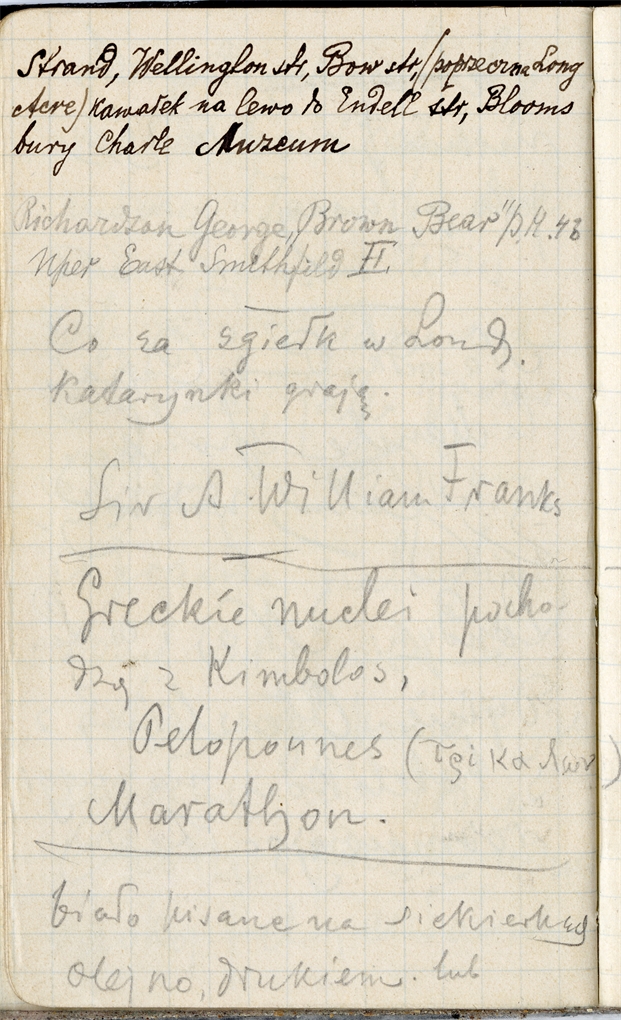 Strand, Wellington str, Bow str, (poprzeczna Long
Acre) kawałek na lewo do Endell str, Blooms
bury Charle Muzeum
Richardson George, Brown Bear"
Uper East Smithfild II
Co za zgiełk w Lond.
Katarynki grają.
Sir A. William Franks
Greckie nuclei pocho-
dzą z Kimbolos,
Peloponnes (
Marathon.
biało pisane na siekierkach
olejno, drukiem. lub